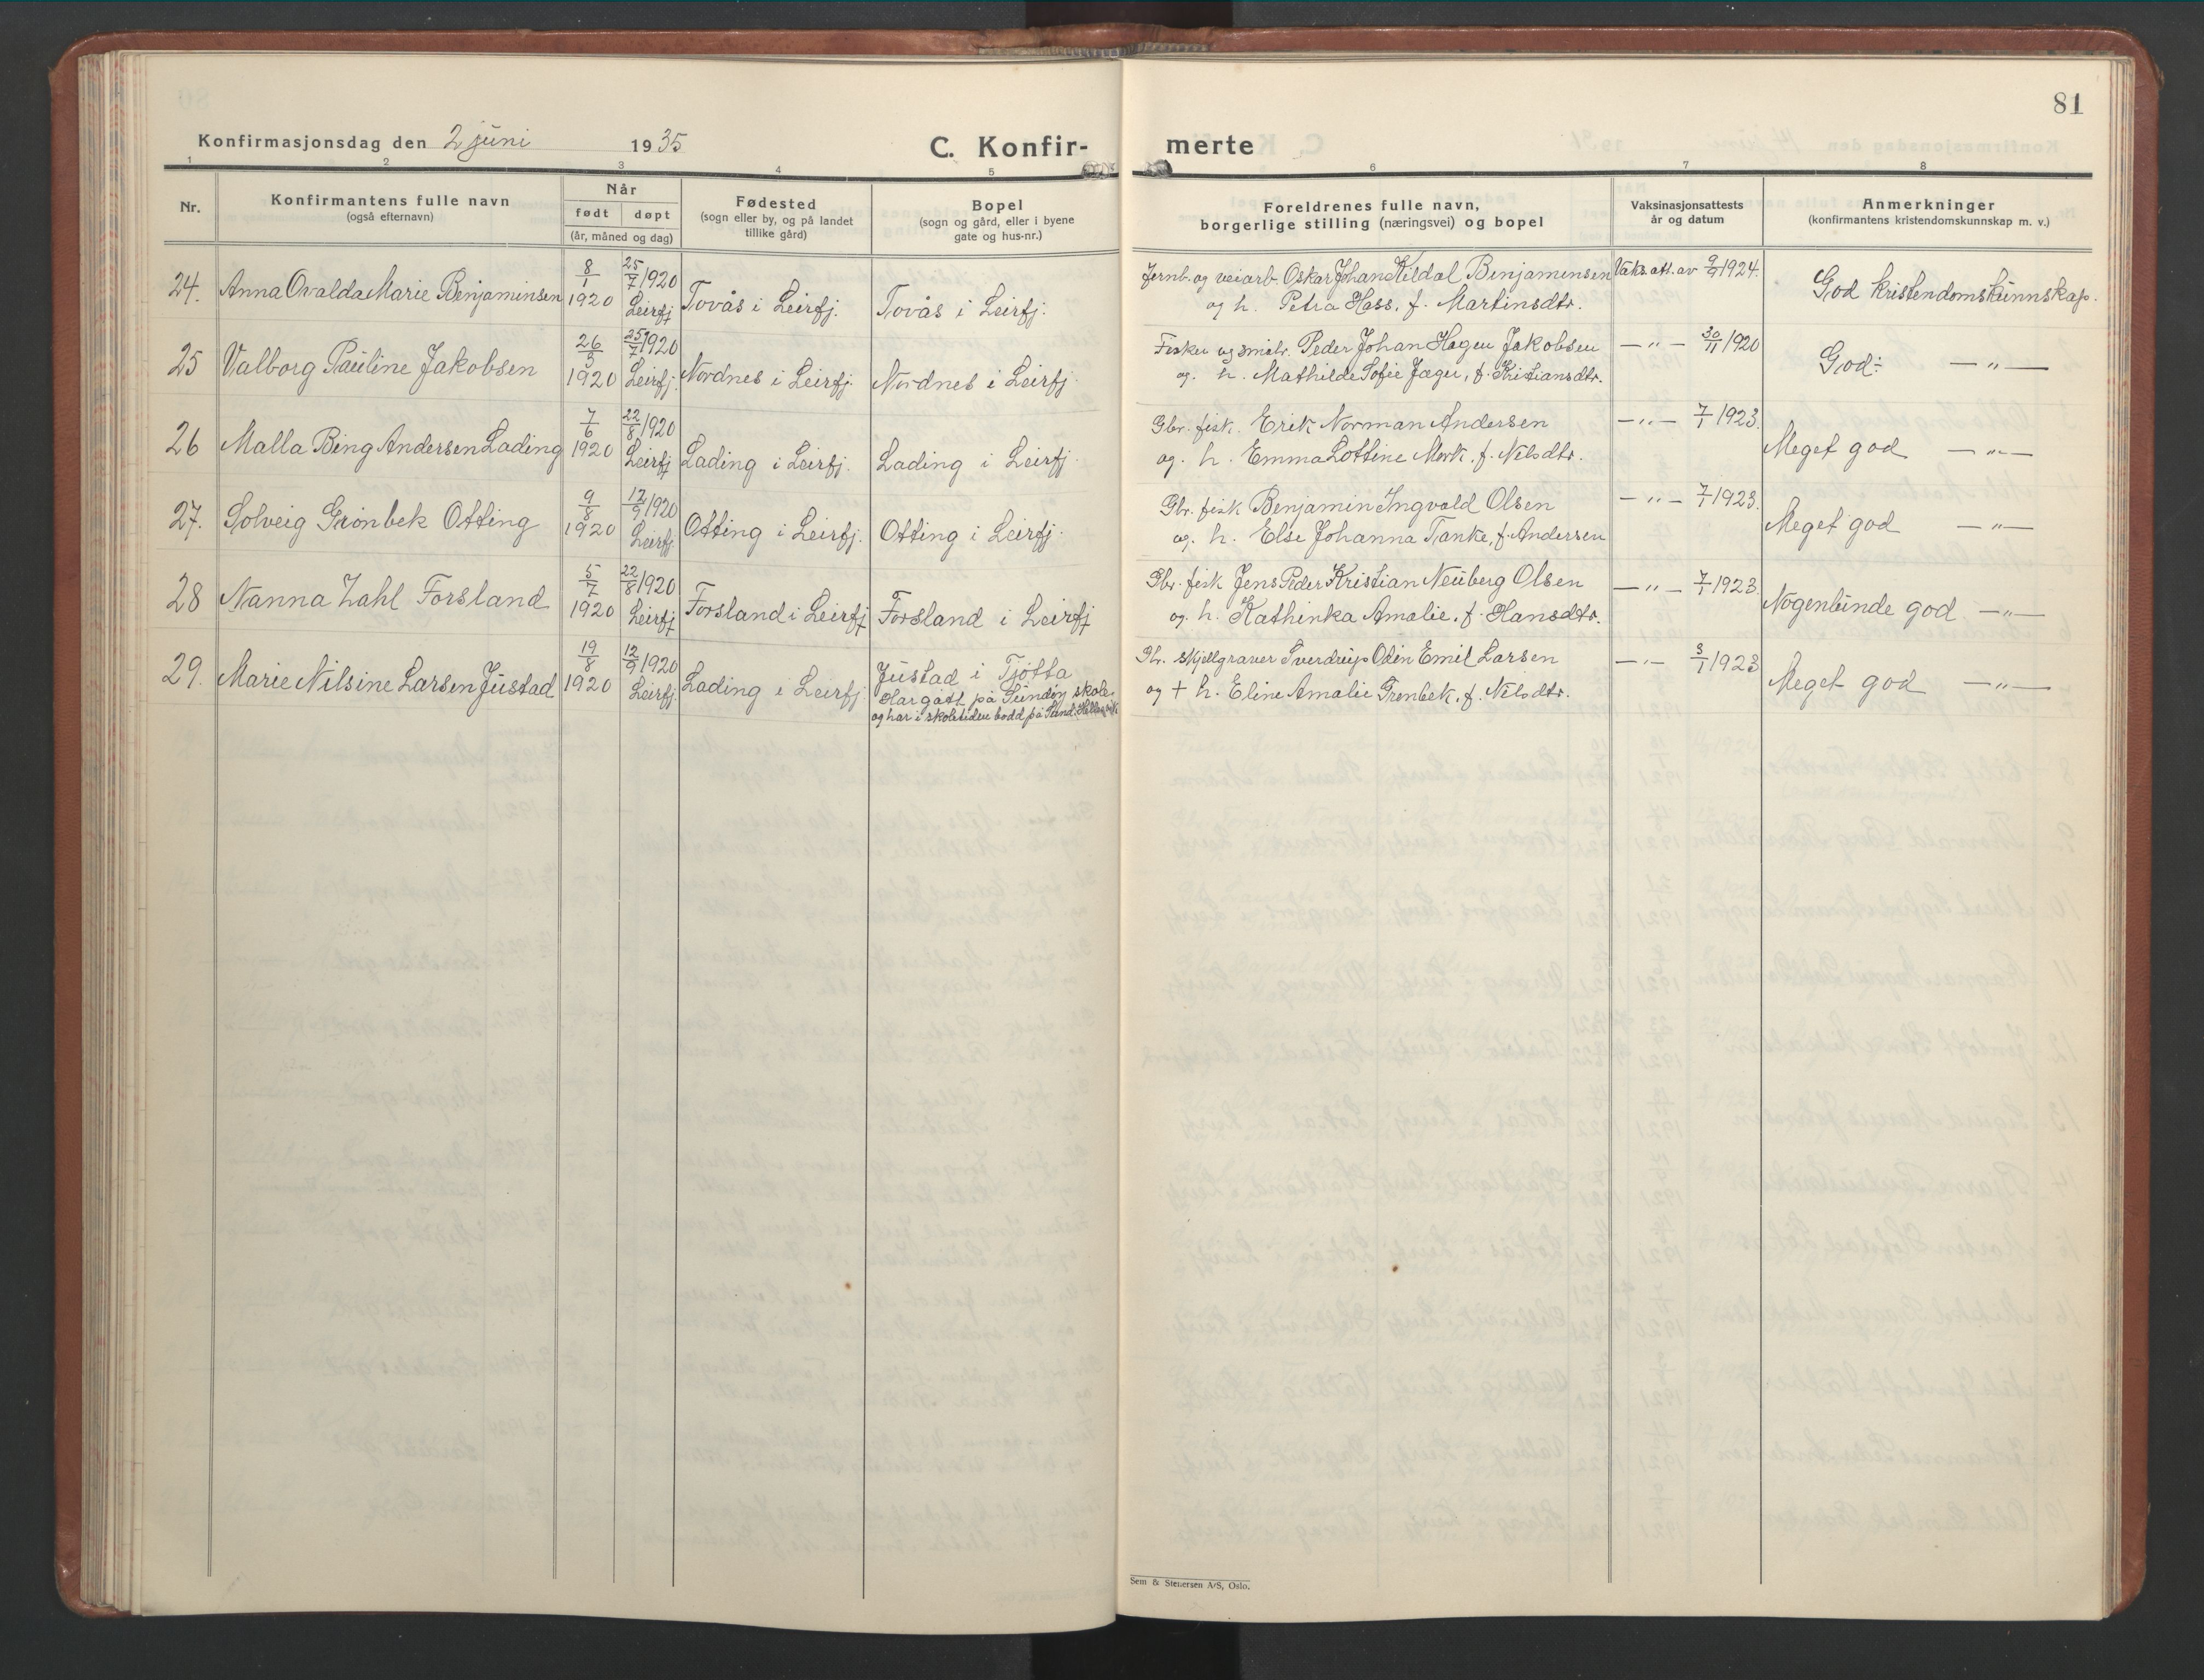 81
Konfirmasjonsdag den 2 juni 1935
C. Konfir-
merte
1 2 3 4 5 6 7 8
Nr.
Konfirmantens fulle navn
(også efternavn)
Når
født døpt
(år, måned og dag)
Fødested
(sogn eller by, og på landet
tillike gård)
Bopel
(sogn og gård, eller i byene
gate og hus-nr.)
Foreldrenes fulle navn,
borgerlige stilling (næringsvei) og bopel
Vaksinasjonsattests
år og datum
Anmerkninger
(konfirmantens kristendomskunnskap m. v.)
24. Anna Ovalda Marie Benjaminsen 8/1 1920 25/7 1920 Leirfj. Tovås i Leirfj. Tovås i Leirfj.
Jernb. og veiarb. Oskar Johan Kildal Benjaminsen
og h. Petra Hass, f. Martinsdtr.
Vaks. att. av 9/9 1924. God kristendomskunnskap.
25 Valborg Pauline Jakobsen 26/5 1920 25/7 1920 Leirfj. Nordnes i Leirfj. Nordnes i Leirfj.
Fisker og småbr. Peder Johan Hagen Jakobsen
og. h. Mathilde Sofie Jæger, f. Kristiansdtr.
— „ — 30/11 1920 God: — „ —
26 Malla Bing Andersen Lading 7/6 1920 22/8 1920 Leirfj Lading i Leirfj. Lading i Leirfj.
Gbr. fisk. Erik Norman Andersen
og. h. Emma Lottine Mork, f. Nilsdtr.
— „ — 7/7 1923. Meget god — „ —
27. Solveig Grønbek Otting 9/8 1920 12/9 1920 Leirfj. Otting i Leirfj. Otting i Leirfj.
Gbr. fisk Benjamin Ingvald Olsen
og. h. Else Johanna Tanke, f. Andersen
— „ — 7/7 1923. Meget god — „ —
28 Nanna Zahl Forsland 5/7 1920 22/8 1920 Leirfj Forsland i Leirfj Forsland i Leirfj
Gbr. fisk Jens Peder Kristian Neuberg Olsen
og. h. Kathinka Amalie, f. Hansdtr.
— „ — 7/7 1923. Nogenlunde god — „ —
29. Marie Nilsine Larsen Justad 19/8 1920 12/9 1920 Leirfj. Lading i Leirfj. Justad i Tjøtta
Har gått på Sundøy skole
og har i skoletiden bodd på
Gbr. skjellgraver Sverdrup Odin Emil Larsen
og + h. Eline Amalie Grønbek, f. Nilsdtr.
— „ — 3/1 1923 Meget god — „ —
Sem & Stenersen A/S, Oslo.